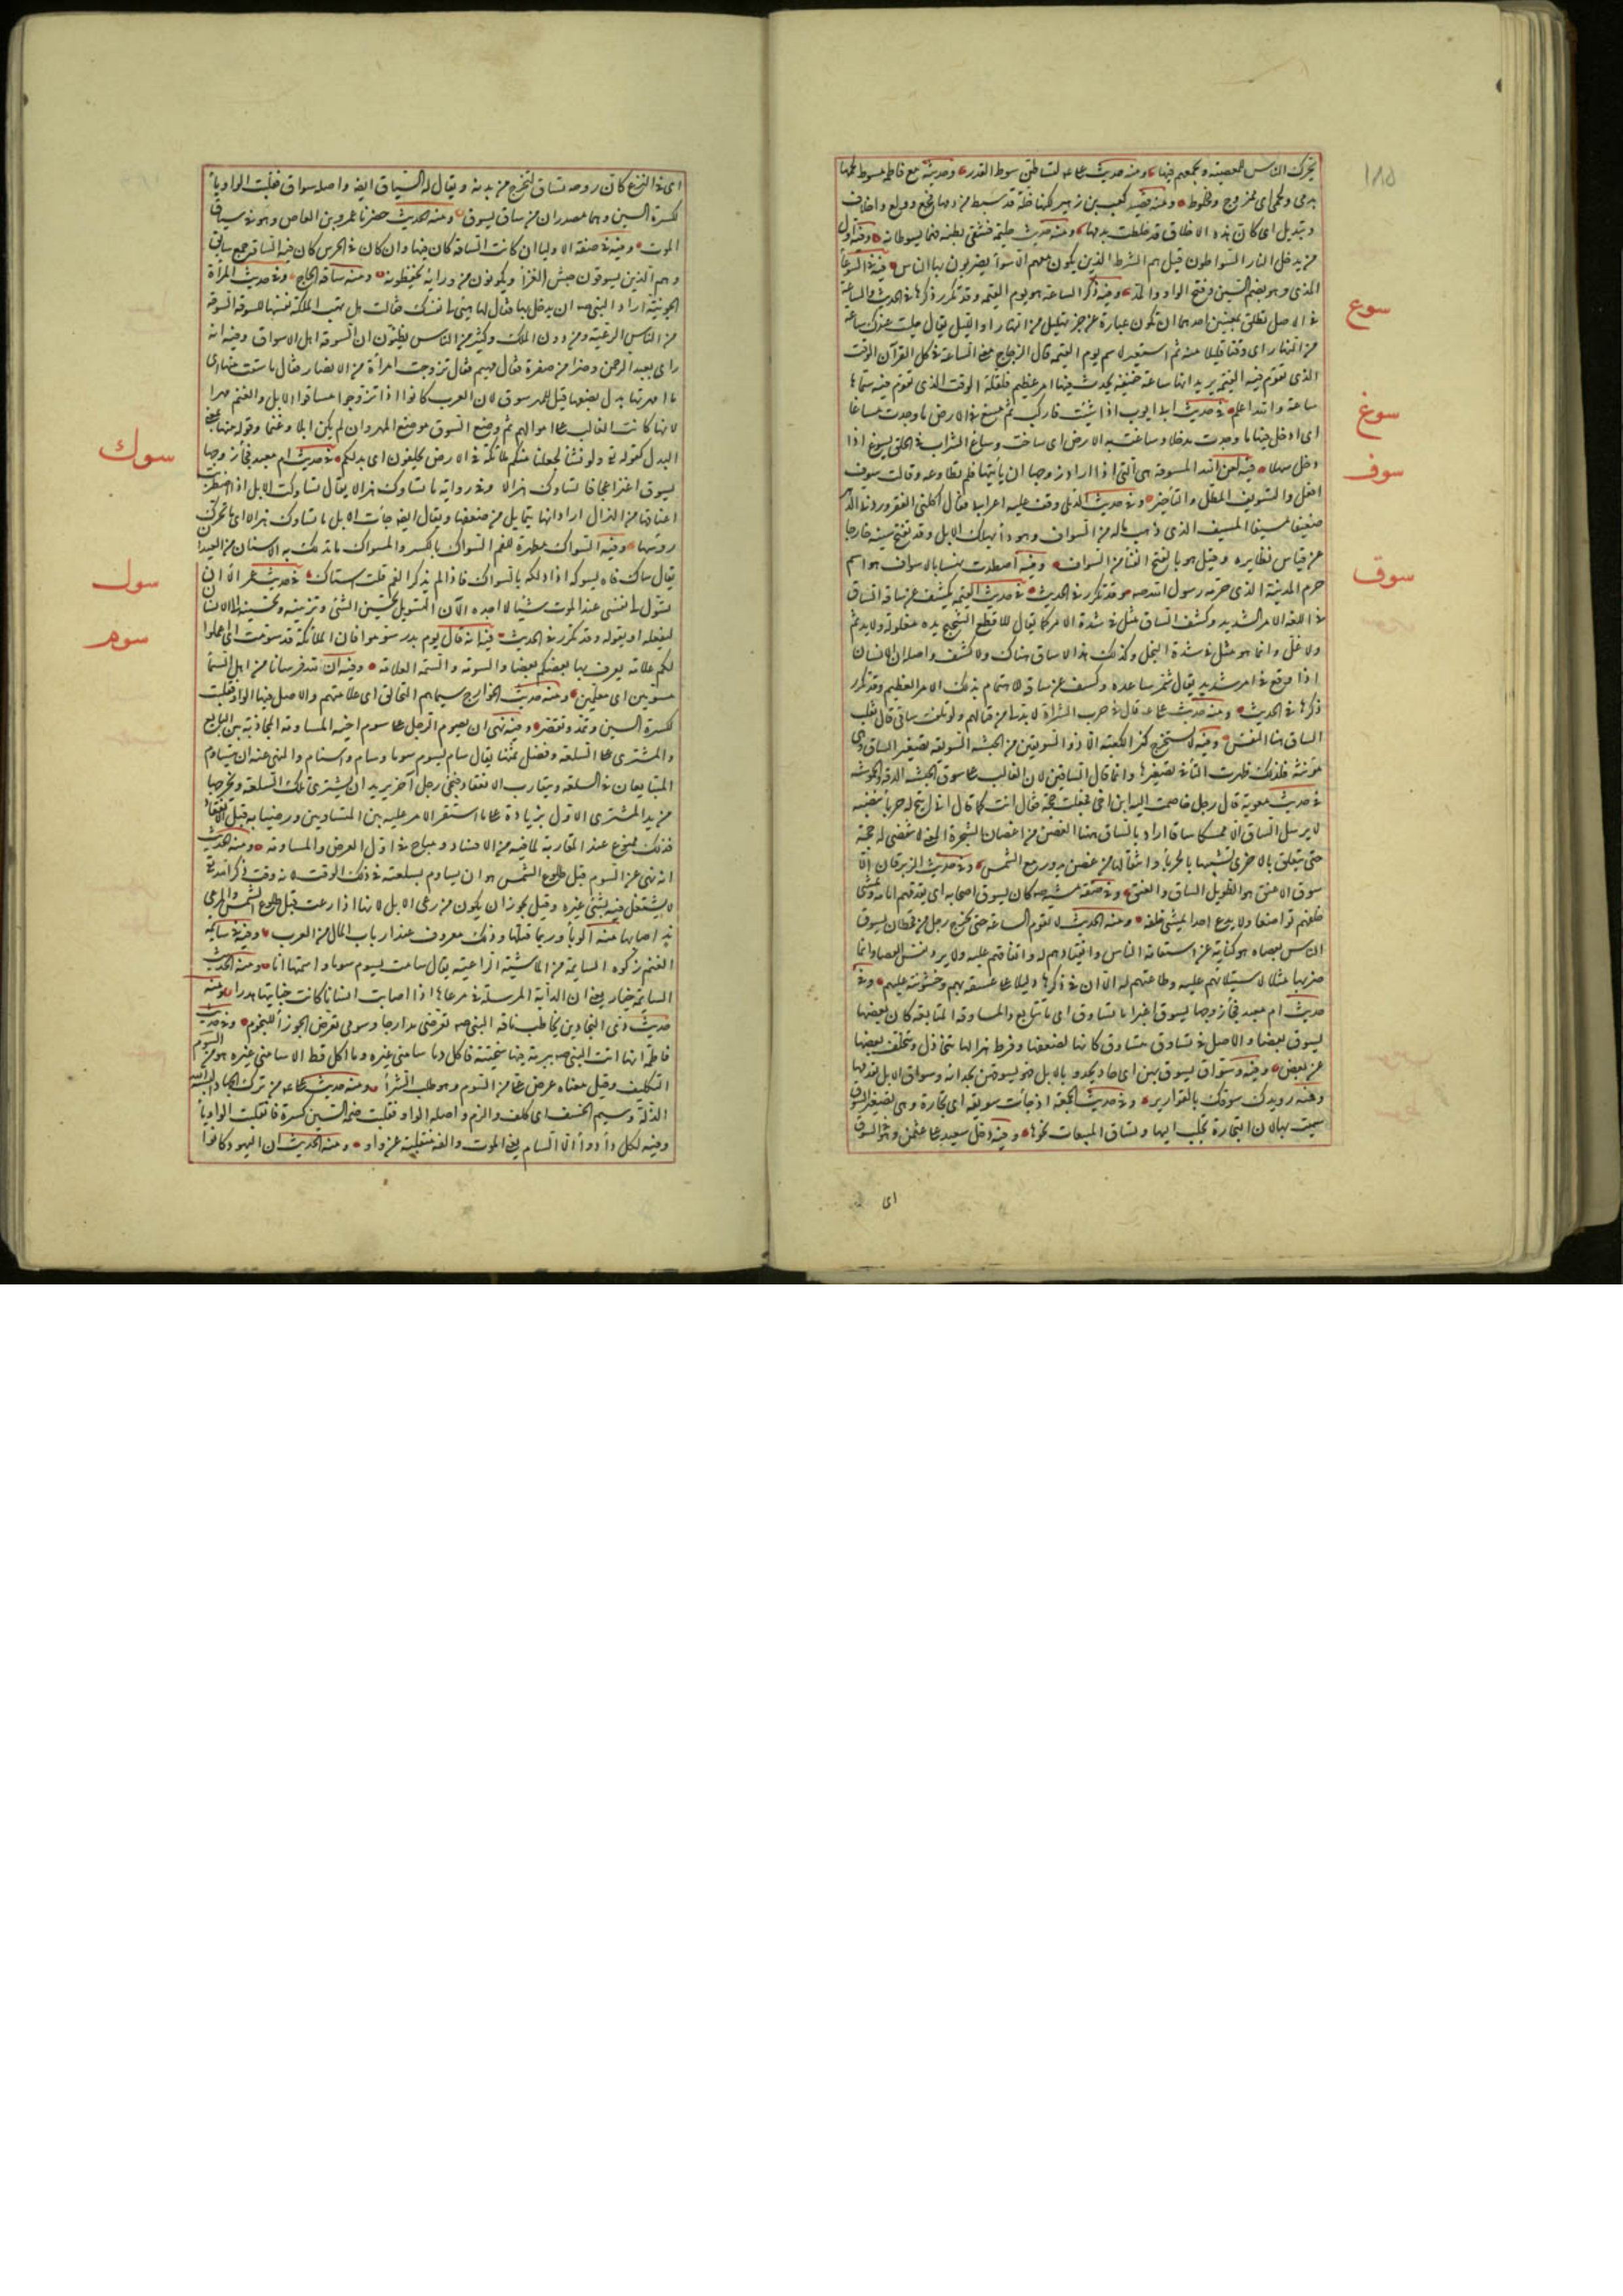 ١٨٥
يحرك الناس للمعصية ويجمعهم فيها ومنه حديث على لتساطن سوط القدر وحديثه مع فاطمة مسوط لحمها
بدمى ولحمى اى ممزوج ومخلوط ومنه قصيد كعب بن زهير لكنها خلة قد سيط من دمها فجع وولع واخلاف
وتبديل اى كان هذه الاخلاق قد خلطت بدمها ومنه حديث حليمة فشقا بطنه فهما يسوطانه وفيه اول
من يدخل النار السواطون قيل هم الشرط الذين يكون معهم الاسواط يضربون بها الناس فيه فى السوعاء
سوع
المذى وهو بضم السين وفتح الواو والمد وفيه ذكر الساعة هو يوم القيمة وقد تكرر ذكرها فى الحديث والساعة
فى الاصل تطلق بمعنيين احدهما ان تكون عبارة عن جزء قليل من النهار او الليل يقال جلست عندك ساعة
من النهار اى وقتا قليلا منه ثم استعير لاسم يوم القيمة قال الزجاج معنى الساعة فى كل القرآن الوقت
الذى تقوم فيه القيمة يريد انها ساعة خفيفة يحدث فيها امر عظيم فلقلة الوقت الذى تقوم فيه سماها
سوغ
ساعة والله اعلم فى حديث ابى ايوب اذا شئت فاركب ثم سغ فى الارض ما وجدت مساغا
اى ادخل فيها ما وجدت مدخلا وساغت به الارض اى ساخت وساغ الشراب فى الحلق يسوغ اذا
سوف
دخل سهلا فيه لعن الله المسوفة هى التى اذا اراد زوجها ان يأتيها لم تطاوعه وقالت سوف
افعل والتسويف المطل والتاخير وفى حديث الدئلى وقف عليه اعرابى فقال اكلنى الفقر وردنى الدهر
ضعيفا مسيفا المسيف الذى ذهب ماله من السواف وهو داء يهلك الابل وقد تفتح سينه خارجا
عن قياس نظايره وقيل هو بالفتح الفناء من السواف وفيه اصطدت نهسا بالاسواف هو اسم
سوق
حرم المدينة الذى حرمه رسول الله صم وقد تكرر فى الحديث فى حديث القيمة يكشف عن ساقه الساق
فى اللغة الامر الشديد وكشف الساق مثل فى شدة الامر كما يقال للاقطع الشحيح يده مغلولة ولا يد ثم
ولا غل وانما هو مثل فى شدة البخل وكذلك هذا لا ساق هناك ولا كشف واصله ان الانسان
اذا وقع فى امر شديد يقال شمر ساعده وكشف عن ساقه للاهتمام بذلك الامر العظيم وقد تكرر
ذكرها فى الحديث ومنه حديث على قال فى حرب الشراة لا بد لى من قتالهم ولو تلفت ساقى قال ثعلب
الساق هنا النفس وفيه لا يستخرج كنز الكعبة الا ذو السويقتين من الحبشة السويقة تصغير الساق وهى
مؤنثة فلذلك ظهرت التاء فى تصغيرها وانما قال الساقين لان الغالب على سوق الحبشة الدقة والحموشة
فى حديث معوية قال رجل خاصمت اليه ابن اخى فجعلت احجه فقال انت كما قال انى اتيح له حرباء تنضبة
لا يرسل الساق الا ممسكا ساقا اراد بالساق هنا الغصن من اغصان الشجرة المعنى لا تنقضى له حجة
حتى يتعلق بالاخرى تشبيها بالحرباء وانتقالها من غصن يدور مع الشمس وفى حديث الزبرقان الا
سوق الاعنق هو الطويل الساق والعنق وفى صفة مشيه صم كان يسوق اصحابه اى يقدمهم امامه ويمشى
خلفهم تواضعا ولا يدع احدا يمشى خلفه ومنه الحديث لا تقوم الساعة حتى يخرج رجل من قحطان يسوق
الناس بعصاه هو كناية عن استقامة الناس وانقيادهم له واتفاقهم عليه ولا يرد نفس العصا وانما
ضربها مثلا لاستيلائهم عليه وطاعتهم له الا ان فى ذكرها دليلا على عسفه بهم وخشونته عليهم وفى
حديث ام معبد فجاء زوجها يسوق اعنزا ما تساوق اى ما تتابع والمساوقة المتابعة كان بعضها
يسوق بعضا والاصل فى تساوق تتساوق كانها لضعفها وفرط هزالها تتخاذل ويتخلف بعضها
عن بعض وفيه وسواق يسوق بهن اى حاد يحدو بالابل فهو يسوقهن بحدائه وسواق الابل يقدمها
ومنه رويدك سوقك بالقوارير وفى حديث الجمعة اذ جاءت سويقة اى تجارة وهى تصغير السوق
سميت بها لان التجارة تجلب اليها وتساق المبيعات نحوها وفيه دخل سعيد على عثمن وهو فى السوق
اى
اى فى النزع كان روحه تساق لتخرج من بدنه ويقال له السياق ايضا واصله سواق فقلبت الواو ياء
لكسرة السين وهما مصدران من ساق يسوق ومنه الحديث حضرنا عمرو بن العاص وهو فى سياق
الموت وفيه فى صفة الاولياء ان كانت الساقة كان فيها وان كان فى الحرس كان فيه الساقة جمع سائق
وهم الذين يسوقون جيش الغزاة ويكونون من ورائه يحفظونه ومنه ساقة الحاج وفى حديث المرأة
الجونية اراد النبى صم ان يدخل بها فقال لها هبى لى نفسك فقالت هل تهب الملكة نفسها للسوقة السوقة
من الناس الرعية ومن دون الملك وكثير من الناس يظنون ان السوقة اهل الاسواق وفيه انه
راى بعبد الرحمن وضرا من صفرة فقال مهيم فقال تزوجت امرأة من الانصار فقال ما سقت منها اى
ما امهرتها بدل بضعها قيل للمهر سوق لان العرب كانوا اذا تزوجوا ساقوا الابل والغنم مهرا
لانها كانت الغالب على اموالهم ثم وضع السوق موضع المهر وان لم يكن ابلا وغنما وقوله منها بمعنى
سوك
البدل كقوله تع ولو نشاء لجعلنا منكم ملائكة فى الارض يخلفون اى بدلكم فى حديث ام معبد فجاء زوجها
يسوق اعنزا عجافا تساوك هزالا وفى رواية ما تساوك هزالا يقال تساوكت الابل اذا اضطربت
اعناقها من الهزال اراد انها تتمايل من ضعفها ويقال ايضا جاءت الابل ما تساوك هزالا اى ما تحرك
رؤسها وفيه السواك مطهرة للفم السواك بالكسر والمسواك ما تدلك به الاسنان من العيدان
سول
يقال ساك فاه يسوكه اذا دلكه بالسواك فاذا لم يذكر الفم قلت استاك فى حديث عمر الا ان
تسول لى نفسى عند الموت شيئا لا اجده الآن التسويل تحسين الشئ وتزيينه وتحبيبه الى الانسان
سوم
ليفعله او يقوله وقد تكرر فى الحديث فيه انه قال يوم بدر سوموا فان الملائكة قد سومت اى اعملوا
لكم علامة يعرف بها بعضكم بعضا والسومة والسمة العلامة وفيه ان لله فرسانا من اهل السماء
مسومين اى معلمين ومنه حديث الخوارج سيماهم التحالق اى علامتهم والاصل فيها الواو فقلبت
لكسرة السين وتمد وتقصر وفيه نهى ان يسوم الرجل على سوم اخيه المساومة المجاذبة بين البايع
والمشترى على السلعة وفصل ثمنها يقال سام يسوم سوما وساوم واستام والمنهى عنه ان يتساوم
المتبايعان فى السلعة ويتقارب الانعقاد فيجئ رجل آخر يريد ان يشترى تلك السلعة ويخرجها
من يد المشترى الاول بزيادة على ما استقر الامر عليه بين المتساومين ورضيا به قبل الانعقاد
فذلك ممنوع عند المقاربة لما فيه من الافساد ومباح فى اول العرض والمساومة ومنه الحديث
انه نهى عن السوم قبل طلوع الشمس هو ان يساوم بسلعته فى ذلك الوقت لانه وقت ذكر الله تع
لا يشتغل فيه بشئ غيره وقيل يجوز ان يكون من رعى الابل لانها اذا رعت قبل طلوع الشمس والمرعى
ند اصابها منه الوباء وربما قتلها وذلك معروف عند ارباب المال من العرب وفيه فى سائمة
الغنم زكوة السائمة من الماشية الراعية يقال سامت تسوم سوما واسمتها انا ومنه الحديث
السائمة جبار يعنى ان الدابة المرسلة فى مرعاها اذا اصابت انسانا كانت جنايتها هدرا ومنه
حديث ذى البجادين يخاطب ناقة النبى صم تعرضى مدارجا وسومى تعرض الجوزاء للنجوم وفى حديث
فاطمة انها اتت النبى صم ببرمة فيها سخينة فاكل وما سامنى غيره وما اكل قط الا سامنى غيره هو من السوم
التكليف وقيل معناه عرض على من السوم وهو طلب الشراء ومنه حديث على من ترك الجهاد البسه الله
الذلة وسيم الخسف اى كلف والزم واصله الواو فقلبت ضمة السين كسرة فانقلبت الواو ياء
وفيه لكل داء دواء الا السام يعنى الموت والفه منقلبة عن واو ومنه الحديث ان اليهود كانوا